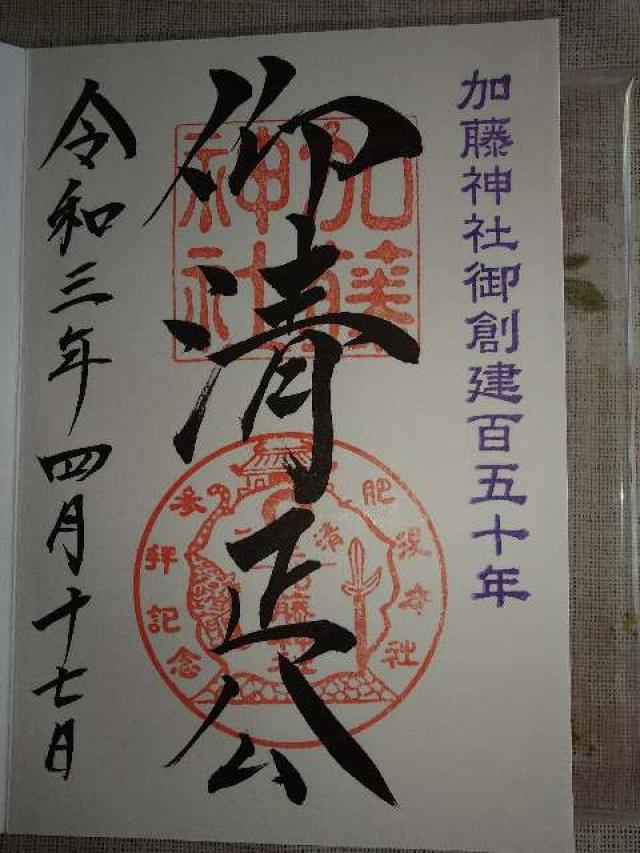 加藤神社御創建百五十年
仰清正公
加藤
神社
肥後本社
参拝記念
加藤神社
令和三年四月十七日